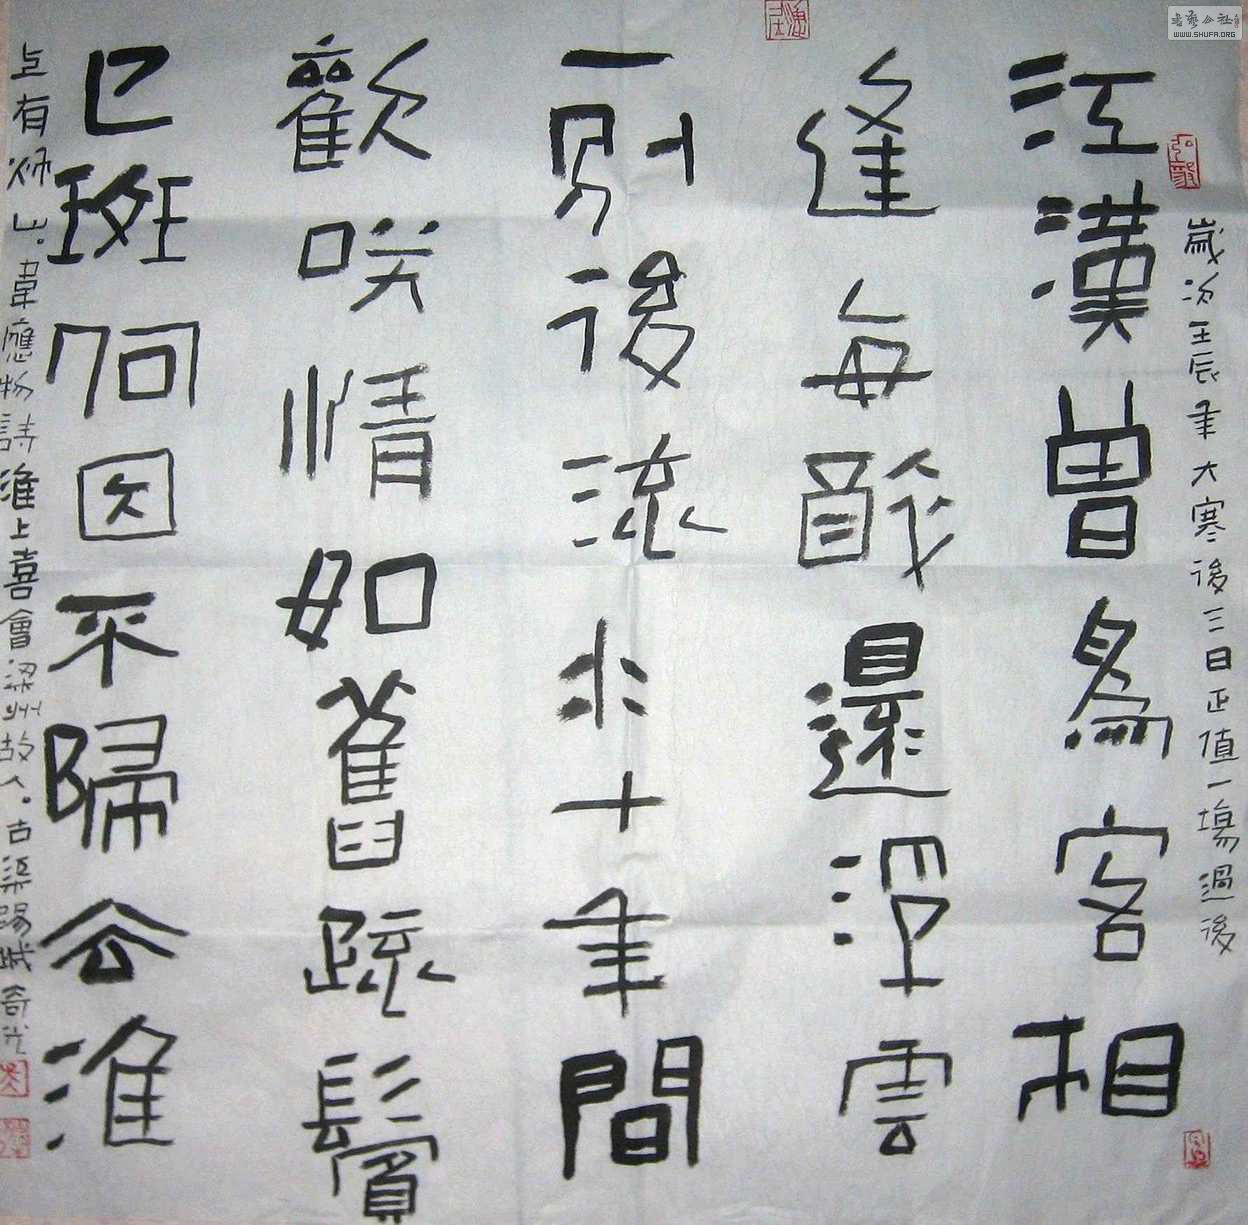 書藝公社
WWW.SHUFA.ORG
歲次壬辰年大寒後三日正值一場過後
弘毅
江漢曾為客相
逢每醉還浮雲
一別後流水十年間
歡咲情如舊疏鬢
已斑何因不歸去淮
上有秌山。韋應物詩淮上喜會梁州故人。古渠陽城奇光